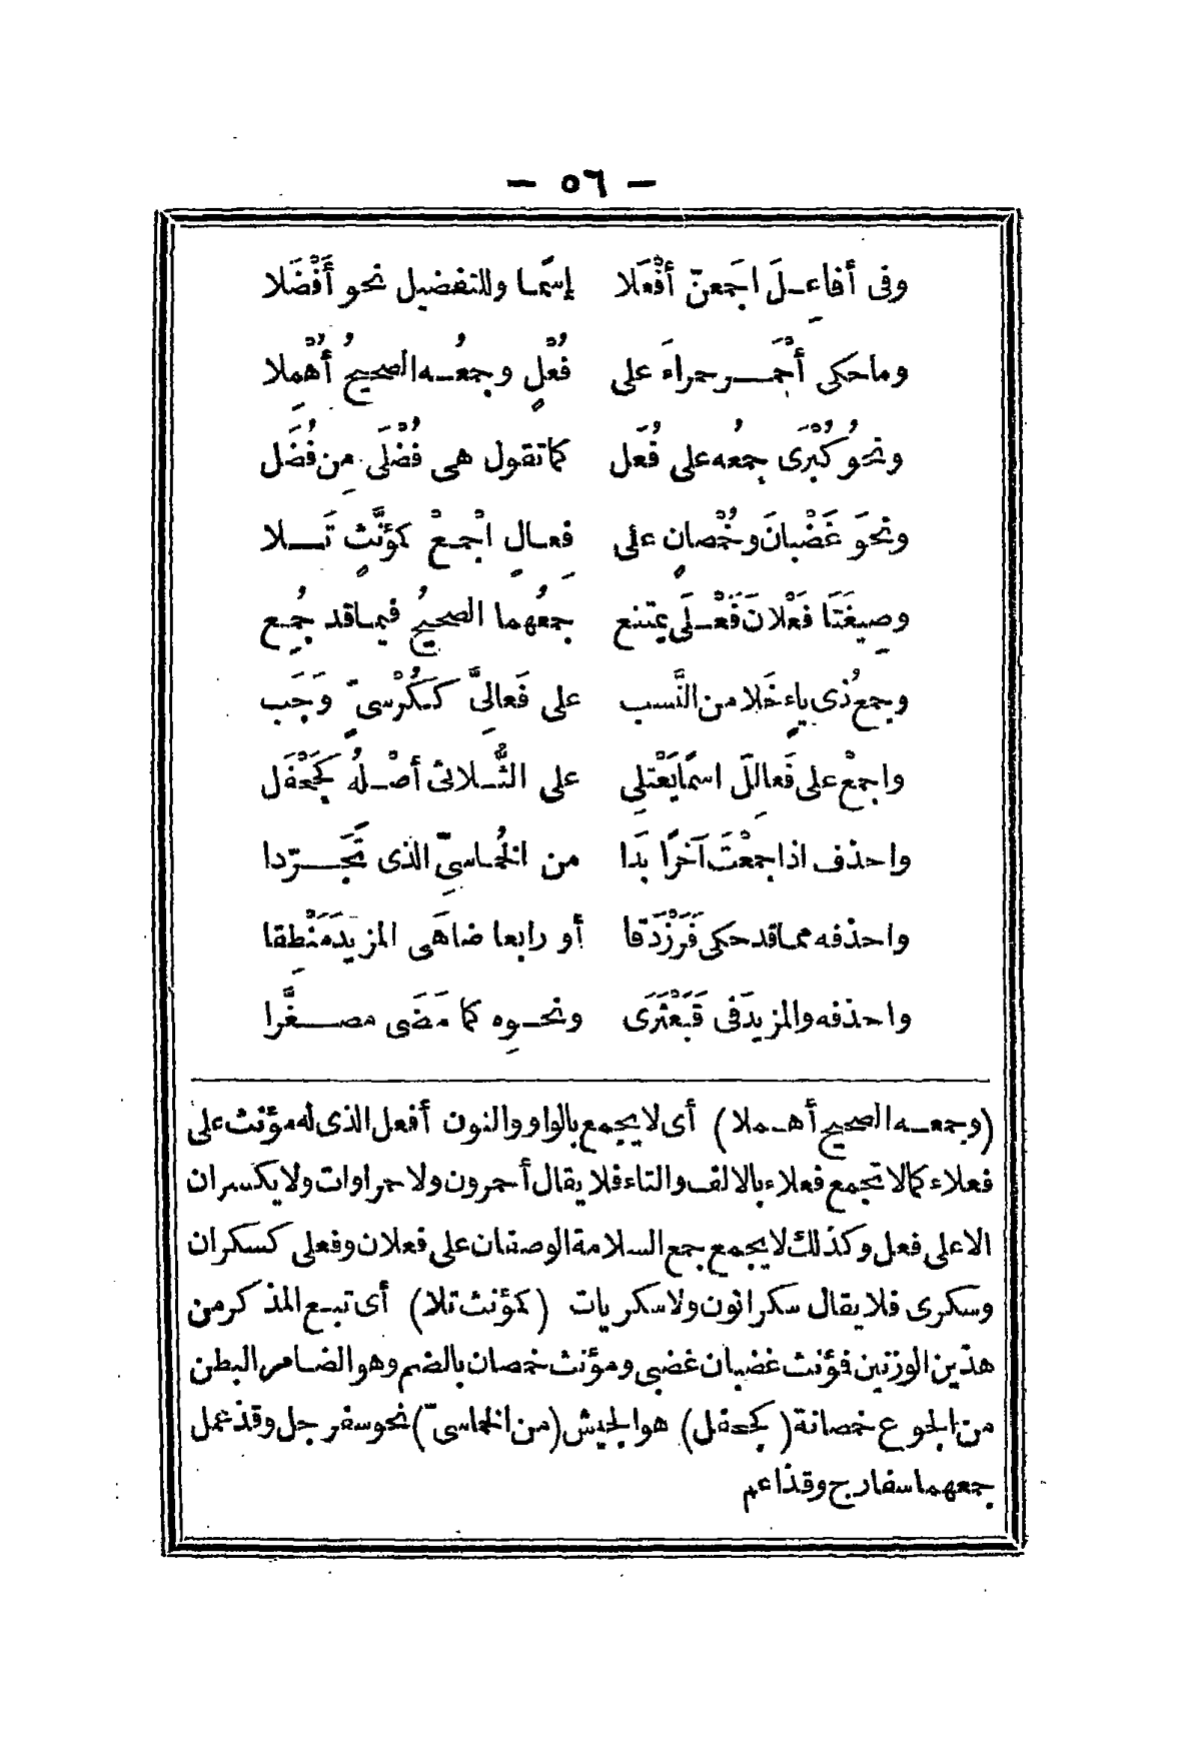 — ٥٦ —
وفى أفاعِـلَ اجَمعنّ أَفْعَلا إسمًـا وللتفضيل نحو أَفْضَلا
وما حكى أَحْمَـــر حمراءَ على فُعْلٍ وجمعُـه الصحيحُ أُهْمِلا
ونحوُ كُبْرَى جمعُه على فُعَل كما تقول هى فُضْلَى مِن فُضَل
ونحوَ غَضْبانَ وخُمْصانٍ على فِعـالٍ اجْمعْ كمؤنَّثٍ تَــلا
وصِيغَتَا فَعْلانَ فَعْـلَى يمتنع جمعُهما الصحيحُ فيما قد جُمِع
وجمعُ ذى ياءٍ خَلا من النَّسب على فَعالِىَّ كـكُرْسىّ وَجَب
واجمعْ على فَعالِلَ اسمًا يَعْتلِى على الثُّـلاثى أصْـلُه كجَحْفَل
واحذف اذا جمعْتَ آخرًا بَدَا من الخُماسِىّ الذى تَجَـــرّدا
واحذفه مما قد حكى فَرَزْدَقا أو رابعا ضاهَى المزيدَ مَنْطِقا
واحذفه والمزيدَ فى قَبَعْثَرَى ونحـوِه كما مَضَى مصــغَّرا
(وجمعـه الصحيح أهـملا) أى لا يجمع بالواو والنون أفعل الذى له مؤنث على
فعلاء كما لا تجمع فعلاء بالالف والتاء فلا يقال أحمرون ولا حمراوات ولا يكسران
الا على فعل وكذلك لا يجمع جمع السلامة الوصفان على فعلان وفعلى كسكران
وسكرى فلا يقال سكرانون ولا سكريات (كمؤنث تلا) أى تبع المذكر من
هذين الوزنين فمؤنث غضبان غضبى ومؤنث خمصان بالضم وهو الضامر البطن
من الجوع خمصانة (كجحفل) هو الجيش (من الخماسىّ) نحو سفرجل وقذعمل
جمعهما سفارج وقذاعم